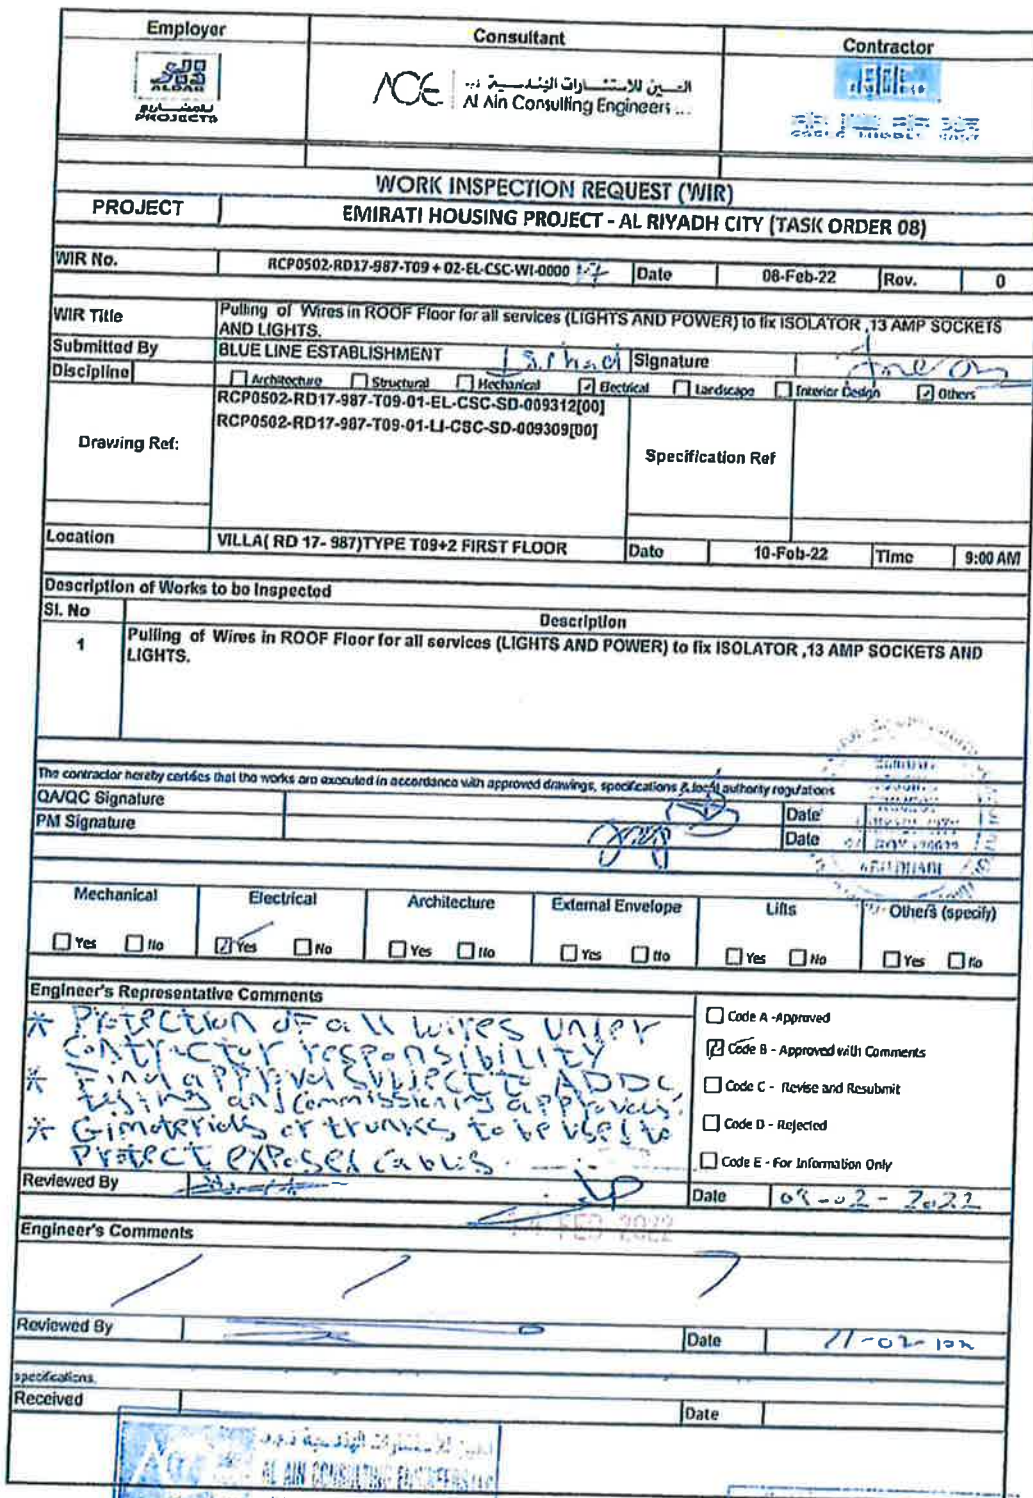 Employer
Consultant
Contractor
ALDAR
للمشاريع
PROJECTS
ACE
العين للاستشارات الهندسية
Al Ain Consulting Engineers ...
WORK INSPECTION REQUEST (WIR)
PROJECT
EMIRATI HOUSING PROJECT - AL RIYADH CITY (TASK ORDER 08)
WIR No.
RCP0502-RD17-987-T09 + 02-EL-CSC-WI-0000
Date
08-Feb-22
Rov.
0
WIR Title
Pulling of Wires in ROOF Floor for all services (LIGHTS AND POWER) to fix ISOLATOR ,13 AMP SOCKETS
AND LIGHTS.
Submitted By
BLUE LINE ESTABLISHMENT
Signature
Discipline
Architecture
Structural
Mechanical
Electrical
Landscape
Interior Design
Others
Drawing Ref:
RCP0502-RD17-987-T09-01-EL-CSC-SD-009312[00]
RCP0502-RD17-987-T09-01-LI-CSC-SD-009309[00]
Specification Ref
Location
VILLA( RD 17- 987)TYPE T09+2 FIRST FLOOR
Date
10-Feb-22
Time
9:00 AM
Description of Works to be Inspected
Sl. No
Description
1
Pulling of Wires in ROOF Floor for all services (LIGHTS AND POWER) to fix ISOLATOR ,13 AMP SOCKETS AND
LIGHTS.
The contractor hereby certifies that the works are executed in accordance with approved drawings, specifications & local authority regulations
QA/QC Signature
Date
PM Signature
Date
ABU DHABI
Mechanical
Electrical
Architecture
External Envelope
Lifts
Others (specify)
Yes No
Yes No
Yes No
Yes No
Yes No
Yes No
Engineer's Representative Comments
* Protection of all wires under
contractor responsibility
* Final approval subject to ADDC
testing and commissioning approvals.
* Gi materials or trunks to be used to
Protect exposed cables.
Code A -Approved
Code B - Approved with Comments
Code C - Revise and Resubmit
Code D - Rejected
Code E - For Information Only
Reviewed By
Date
FEB 2022
Engineer's Comments
Reviewed By
Date
specifications.
Received
Date
AL AIN CONSULTING ENGINEERS